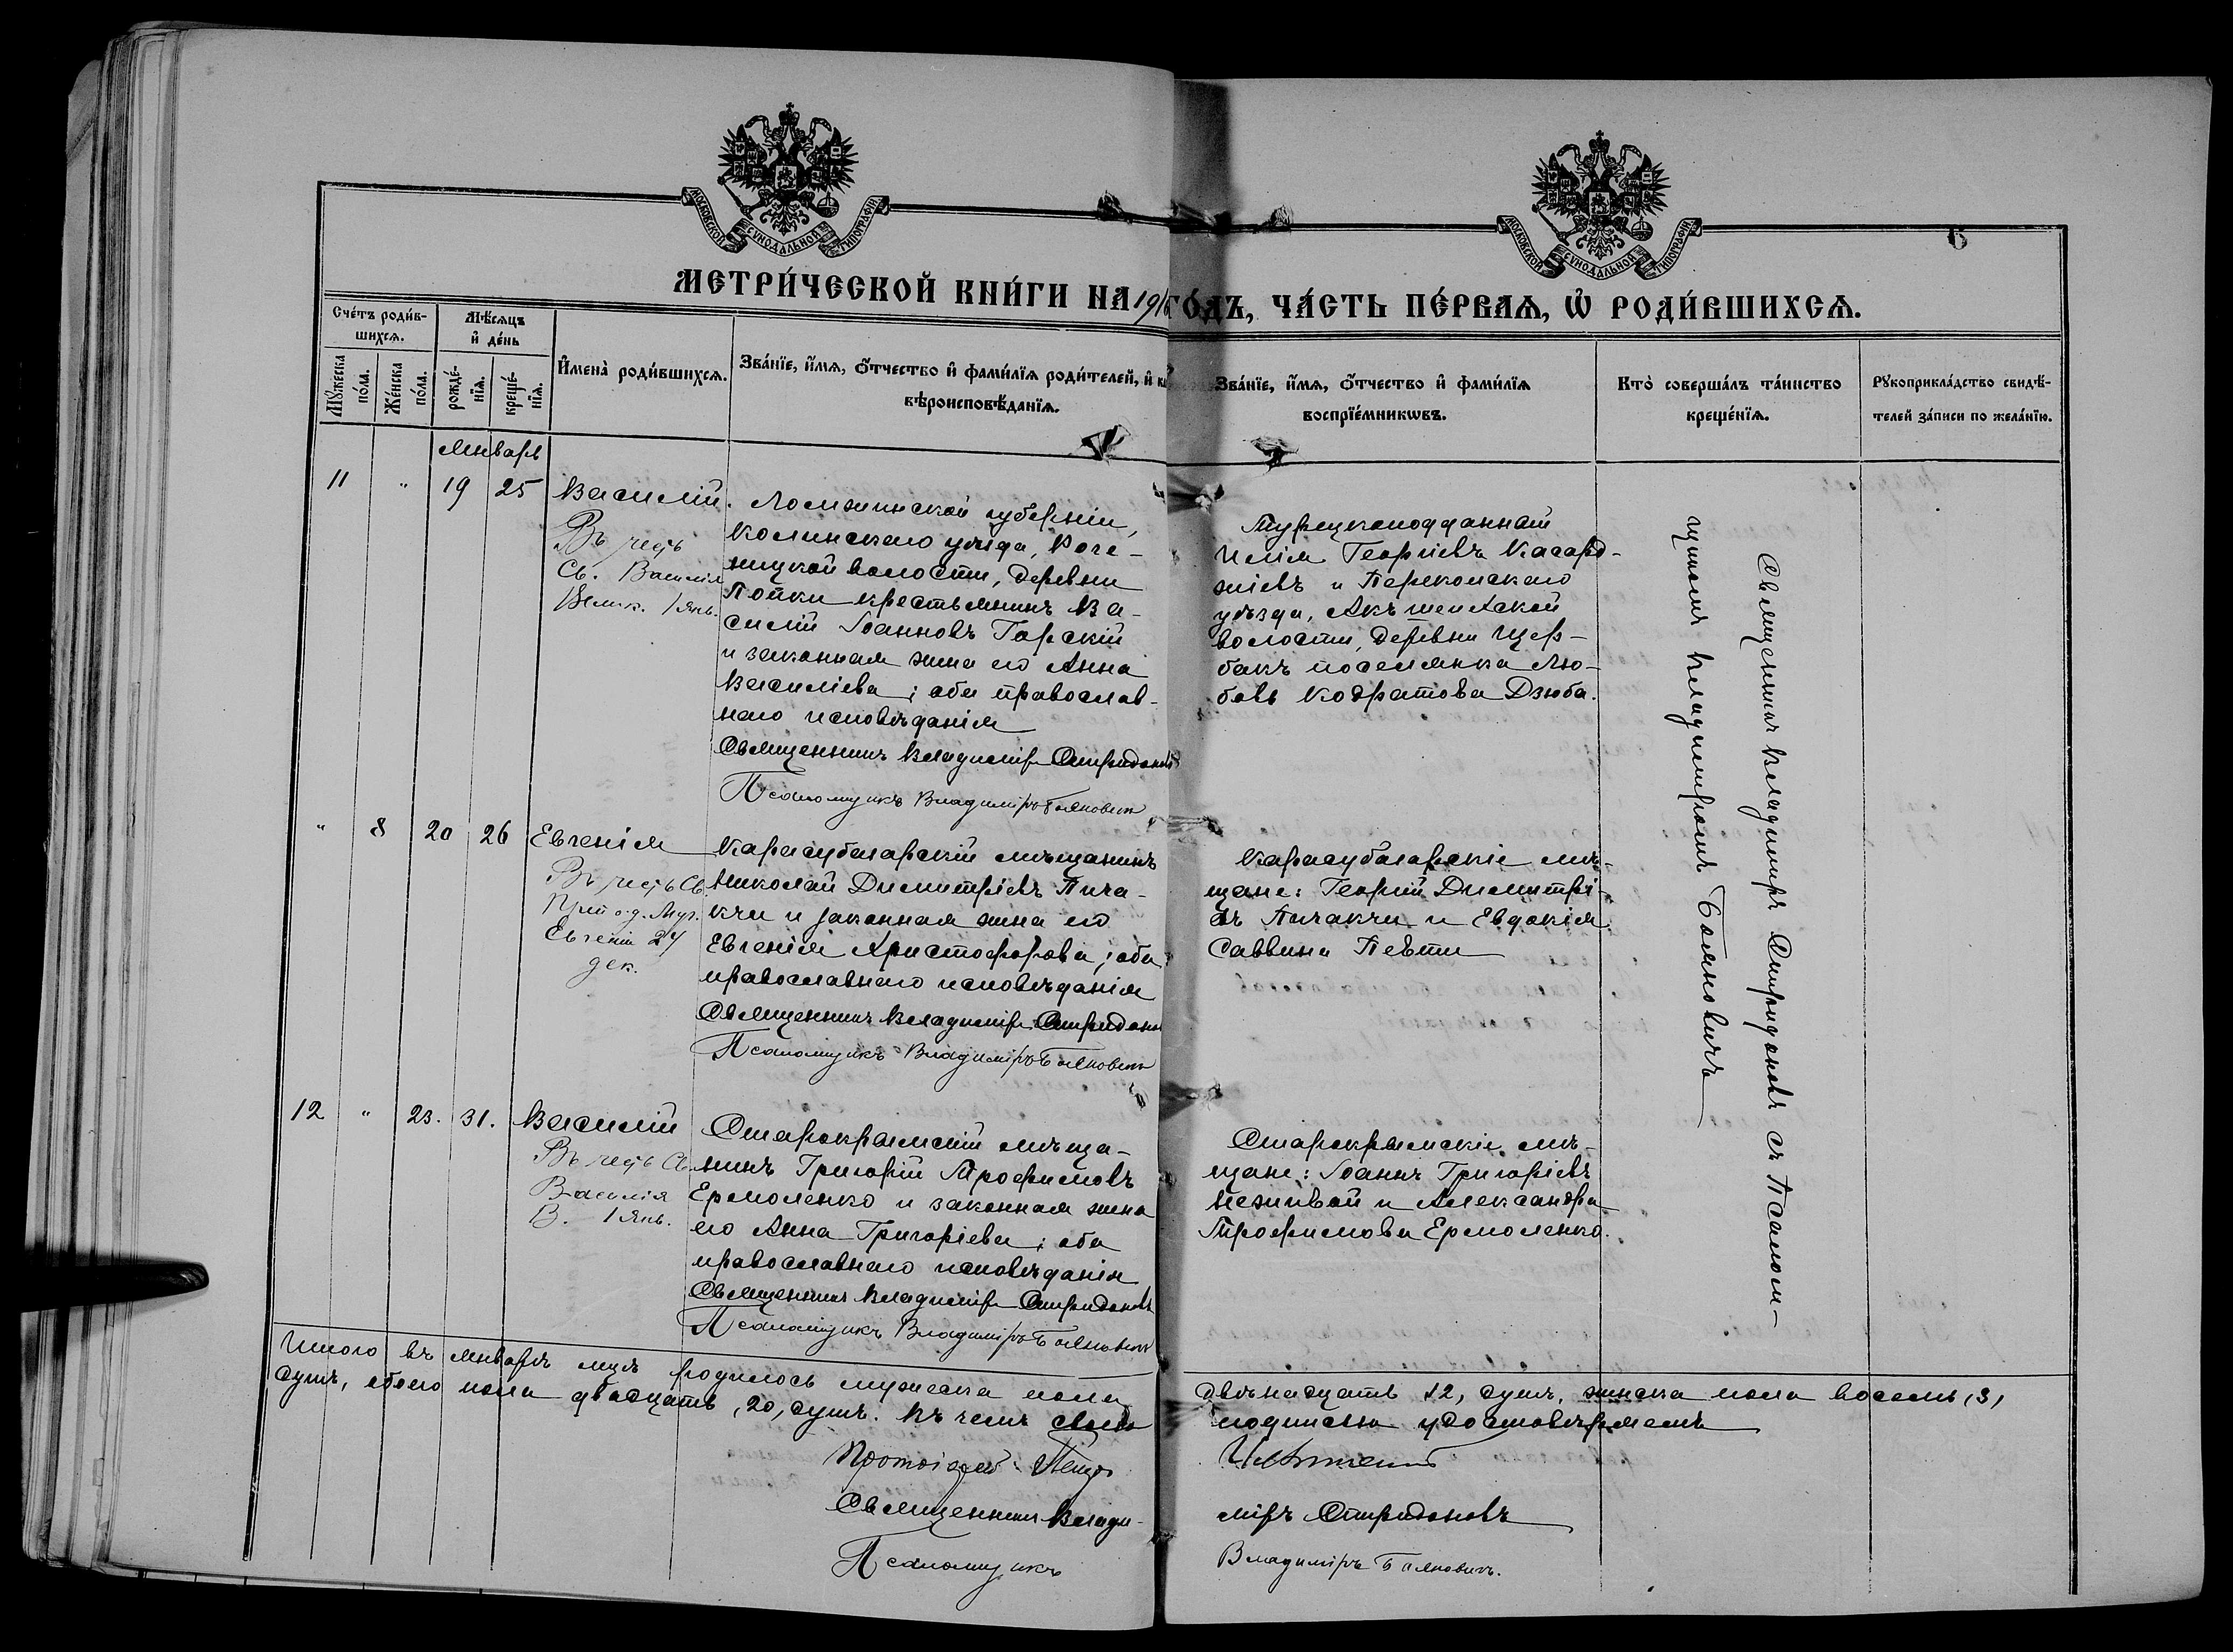 МОСКОВСКОЙ СУНОДАЛЬНОЙ ТИПОГРАФІИ
МОСКОВСКОЙ СУНОДАЛЬНОЙ ТИПОГРАФІИ
6
МЕТРИ́ЧЕСКОЙ КНИ́ГИ НА 1916 ГО́ДЪ, ЧА́СТЬ ПЕ́РВАѦ, Ѡ҆ РОДИ́ВШИХСѦ.
Сче́тъ роди́в-
шихсѧ.
Мꙋ́жеска по́ла.
Же́нска по́ла.
Мѣ́сѧцъ
и҆ де́нь
рожде́-
нїѧ.
креще́-
нїѧ.
И҆мена̀ роди́вшихсѧ.
Зва́нїе, и҆́мѧ, ѻ҆́тчество и҆ фами́лїѧ роди́телей, и҆ ка
вѣроисповѣ́данїѧ.
Зва́нїе, и҆́мѧ, ѻ҆́тчество и҆ фами́лїѧ
воспрїе́мникѡвъ.
Кто̀ соверша́лъ та́инство
креще́нїѧ.
Рꙋкоприкла́дство свидѣ́-
телей за́писи по жела́нїю.
Январь
11 " 19 25 Василій.
Въ честь
Св. Василія
Велик. 1 янв.
Ломжинской губерніи,
Колинскаго уѣзда, Рога-
ницкой волости, деревни
Попки крестьянинъ Ва-
силій Іоанновъ Горскій
и законная жена его Анна
Василіева; оба православ-
наго исповѣданія
Священникъ Владиміръ Спиридоновъ
Псаломщикъ Владиміръ Бояновичъ
Турецкоподданный
Илія Георгіевъ Касард-
жіевъ и Перекопскаго
уѣзда, Акъ-шеихской
волости, деревни Щер-
бакъ поселянка Лю-
бовь Кодратова Дзюба.
Священникъ Владиміръ Спиридоновъ съ Псалом-
щикомъ Владиміромъ Бояновичъ
" 8 20 26 Евгенія
Въ честь Св.
Препод. Муч.
Евгеніи 24
дек.
Карасубазарскій мѣщанинъ
Николай Димитріевъ Пича-
кчи и законная жена его
Евгенія Христофорова; оба
православнаго исповѣданія
Священникъ Владиміръ Спиридоновъ
Псаломщикъ Владиміръ Бояновичъ
Карасубазарскіе мѣ-
щане: Георгій Димитрі-
евъ Пичакчи и Евдокія
Саввина Певти
12 " 23. 31. Василій
Въ честь Св.
Василія
В. 1 янв.
Старокрымскій мѣща-
нинъ Григорій Трофимовъ
Ермоленко и законная жена
его Анна Григоріева; оба
православнаго исповѣданія
Священникъ Владиміръ Спиридоновъ
Псаломщикъ Владиміръ Бояновичъ
Старокрымскіе мѣ-
щане: Іоаннъ Григоріевъ
Неживой и Александра
Трофимова Ермоленко.
Итого въ январѣ мцѣ родилось мужеска пола двѣнадцать 12, душъ, женска пола восемь (8)
душъ, обоего пола двадцать, 20, душъ. Въ чемъ своею подписью удостовѣряемъ
Протоіерей Петръ
Священникъ Влади-міръ Спиридоновъ
Псаломщикъ Владиміръ Бояновичъ.